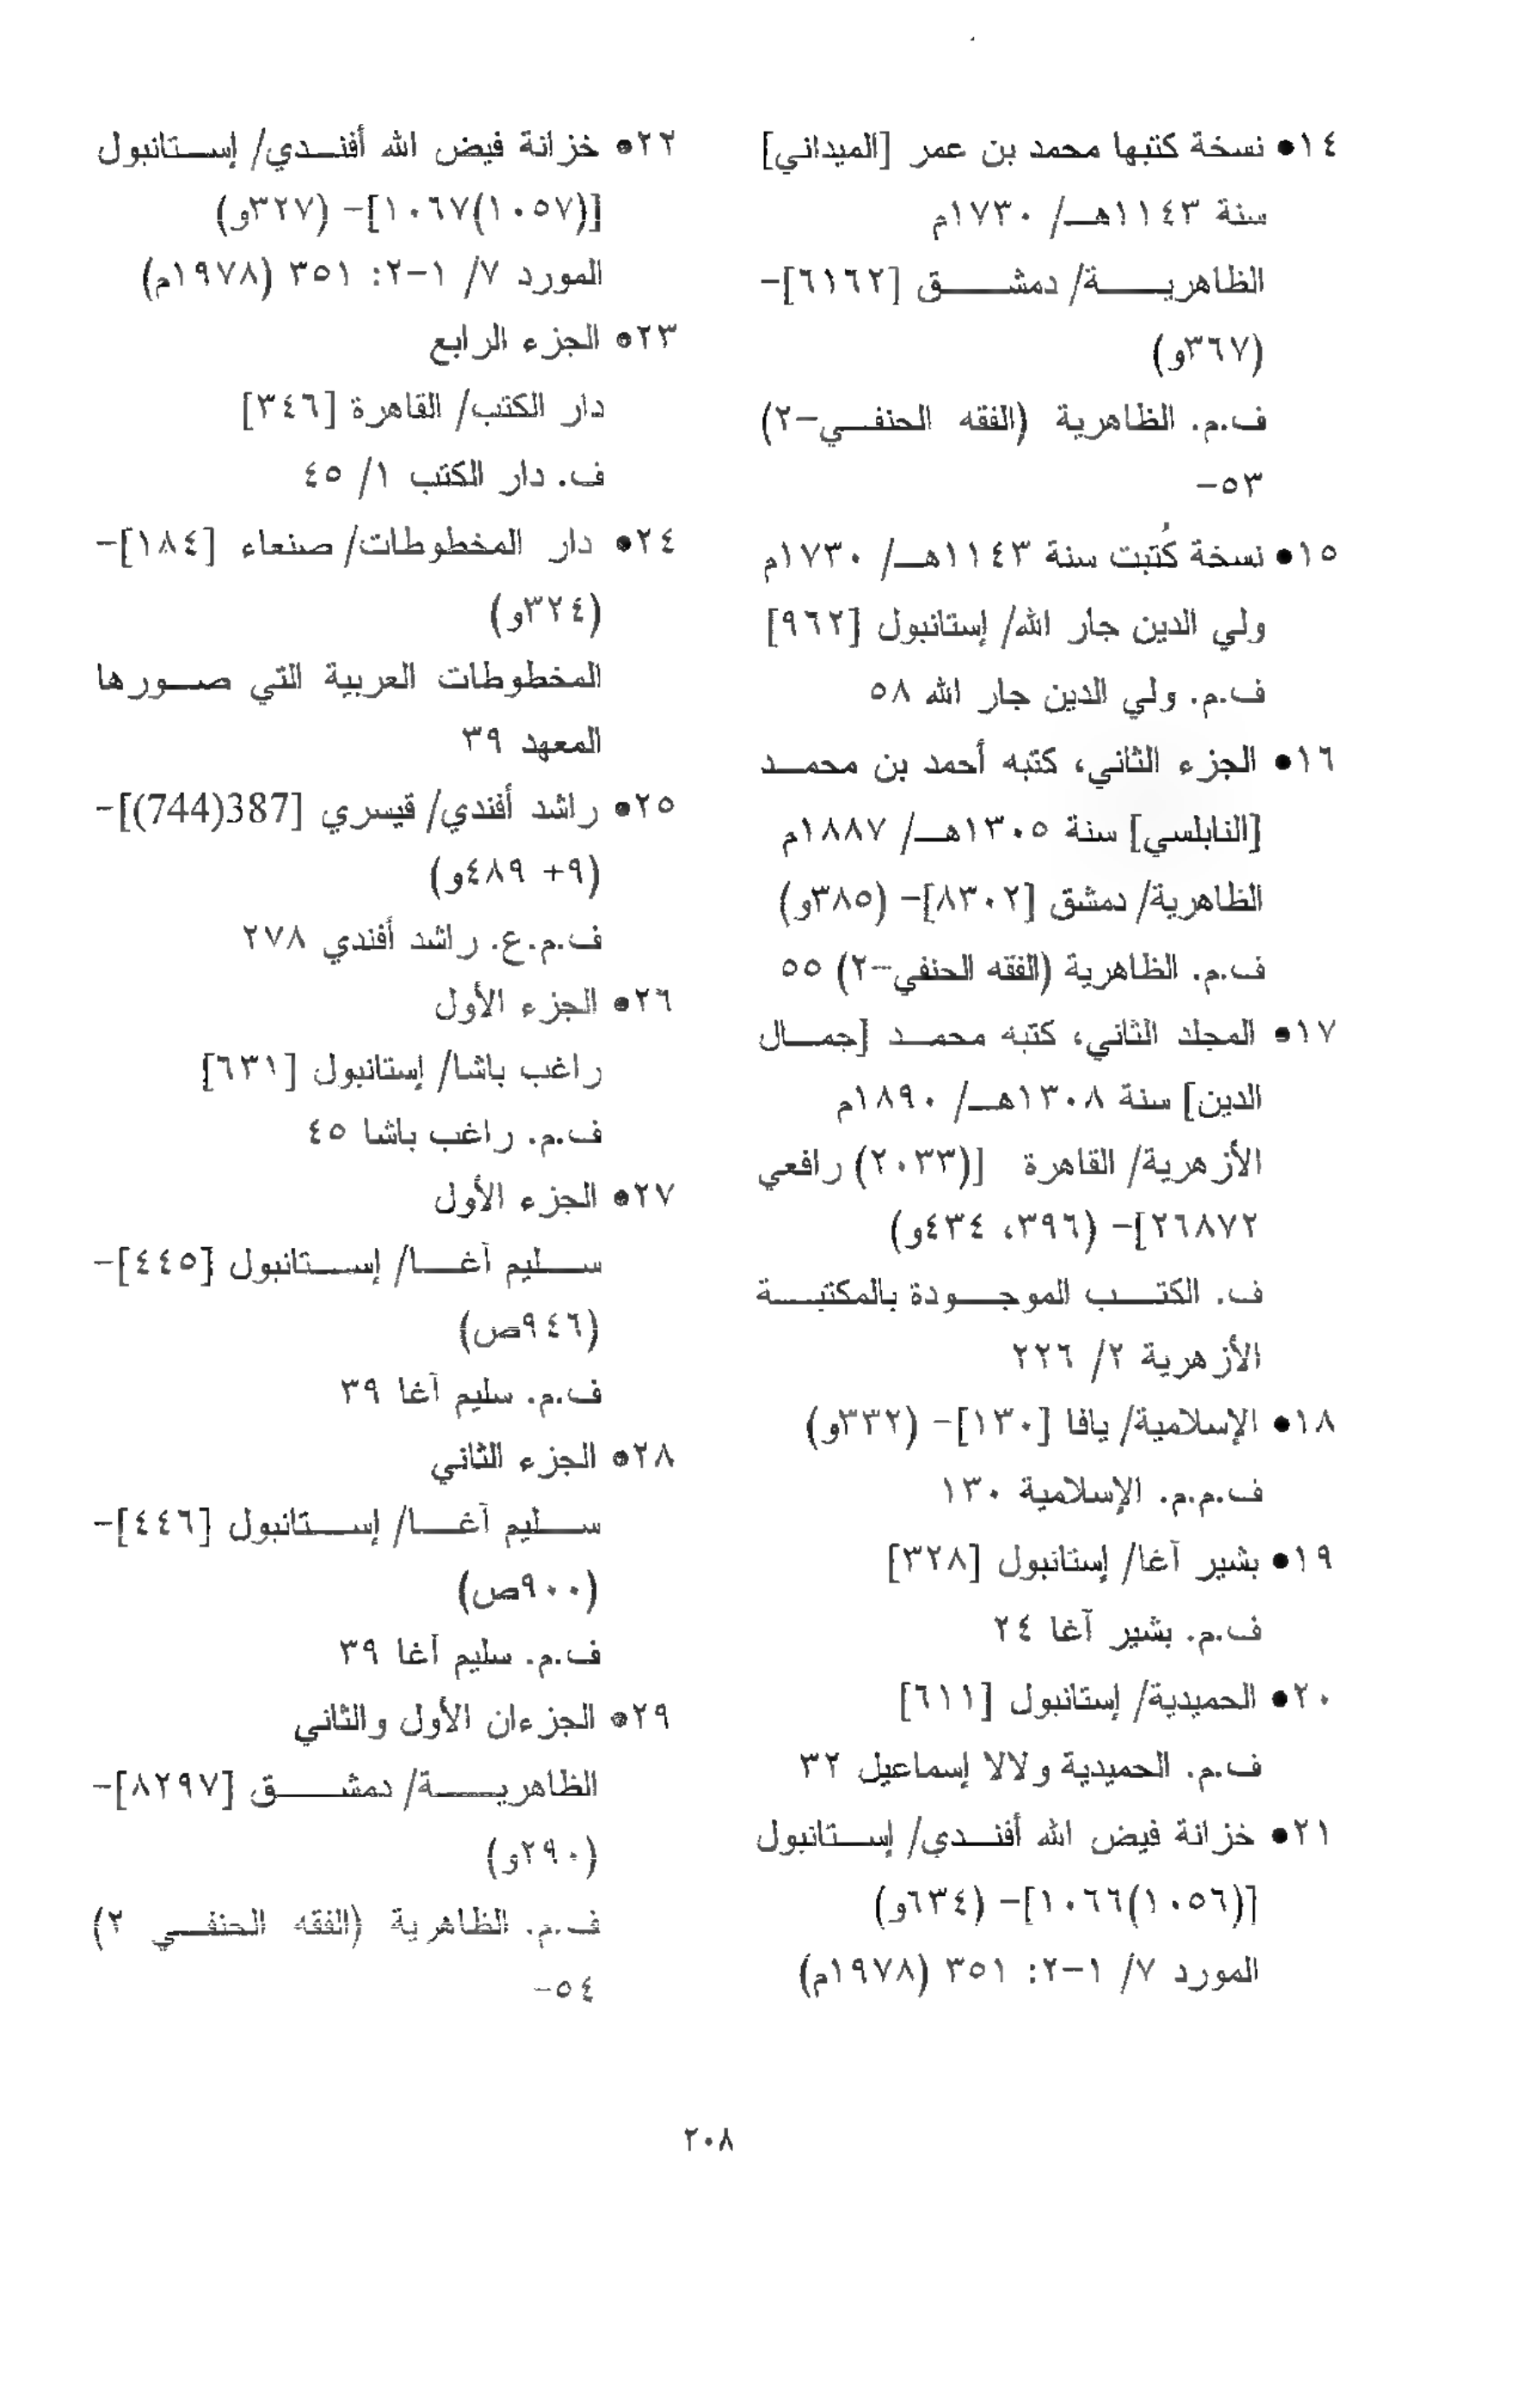 ١٤● نسخة كتبها محمد بن عمر [الميداني]
سنة ١١٤٣هـ/ ١٧٣٠م
الظاهرية/ دمشق [٦١٦٢]-
(٣٦٧و)
ف.م. الظاهرية (الفقه الحنفي-٢)
٥٣-
١٥● نسخة كُتبت سنة ١١٤٣هـ/ ١٧٣٠م
ولي الدين جار الله/ إستانبول [٩٦٢]
ف.م. ولي الدين جار الله ٥٨
١٦● الجزء الثاني، كتبه أحمد بن محمد
[النابلسي] سنة ١٣٠٥هـ/ ١٨٨٧م
الظاهرية/ دمشق [٨٣٠٢]- (٣٨٥و)
ف.م. الظاهرية (الفقه الحنفي-٢) ٥٥
١٧● المجلد الثاني، كتبه محمد [جمال
الدين] سنة ١٣٠٨هـ/ ١٨٩٠م
الأزهرية/ القاهرة [(٢٠٣٣) رافعي
٢٦٨٧٢]- (٣٩٦، ٤٣٤و)
ف. الكتب الموجودة بالمكتبة
الأزهرية ٢/ ٢٢٦
١٨● الإسلامية/ يافا [١٣٠]- (٣٣٢و)
ف.م.م. الإسلامية ١٣٠
١٩● بشير آغا/ إستانبول [٣٢٨]
ف.م. بشير آغا ٢٤
٢٠● الحميدية/ إستانبول [٦١١]
ف.م. الحميدية ولالا إسماعيل ٣٢
٢١● خزانة فيض الله أفندي/ إستانبول
[(١٠٥٦)١٠٦٦]- (٦٣٤و)
المورد ٧/ ١-٢: ٣٥١ (١٩٧٨م)
٢٢● خزانة فيض الله أفندي/ إستانبول
[(١٠٥٧)١٠٦٧]- (٣٢٧و)
المورد ٧/ ١-٢: ٣٥١ (١٩٧٨م)
٢٣● الجزء الرابع
دار الكتب/ القاهرة [٣٤٦]
ف. دار الكتب ١/ ٤٥
٢٤● دار المخطوطات/ صنعاء [١٨٤]-
(٣٢٤و)
المخطوطات العربية التي صورها
المعهد ٣٩
٢٥● راشد أفندي/ قيسري [387(744)]-
(٩+ ٤٨٩و)
ف.م.ع. راشد أفندي ٢٧٨
٢٦● الجزء الأول
راغب باشا/ إستانبول [٦٣١]
ف.م. راغب باشا ٤٥
٢٧● الجزء الأول
سليم آغا/ إستانبول [٤٤٥]-
(٩٤٦ص)
ف.م. سليم آغا ٣٩
٢٨● الجزء الثاني
سليم آغا/ إستانبول [٤٤٦]-
(٩٠٠ص)
ف.م. سليم آغا ٣٩
٢٩● الجزءان الأول والثاني
الظاهرية/ دمشق [٨٢٩٧]-
(٢٩٠و)
ف.م. الظاهرية (الفقه الحنفي ٢)
٥٤-
٢٠٨